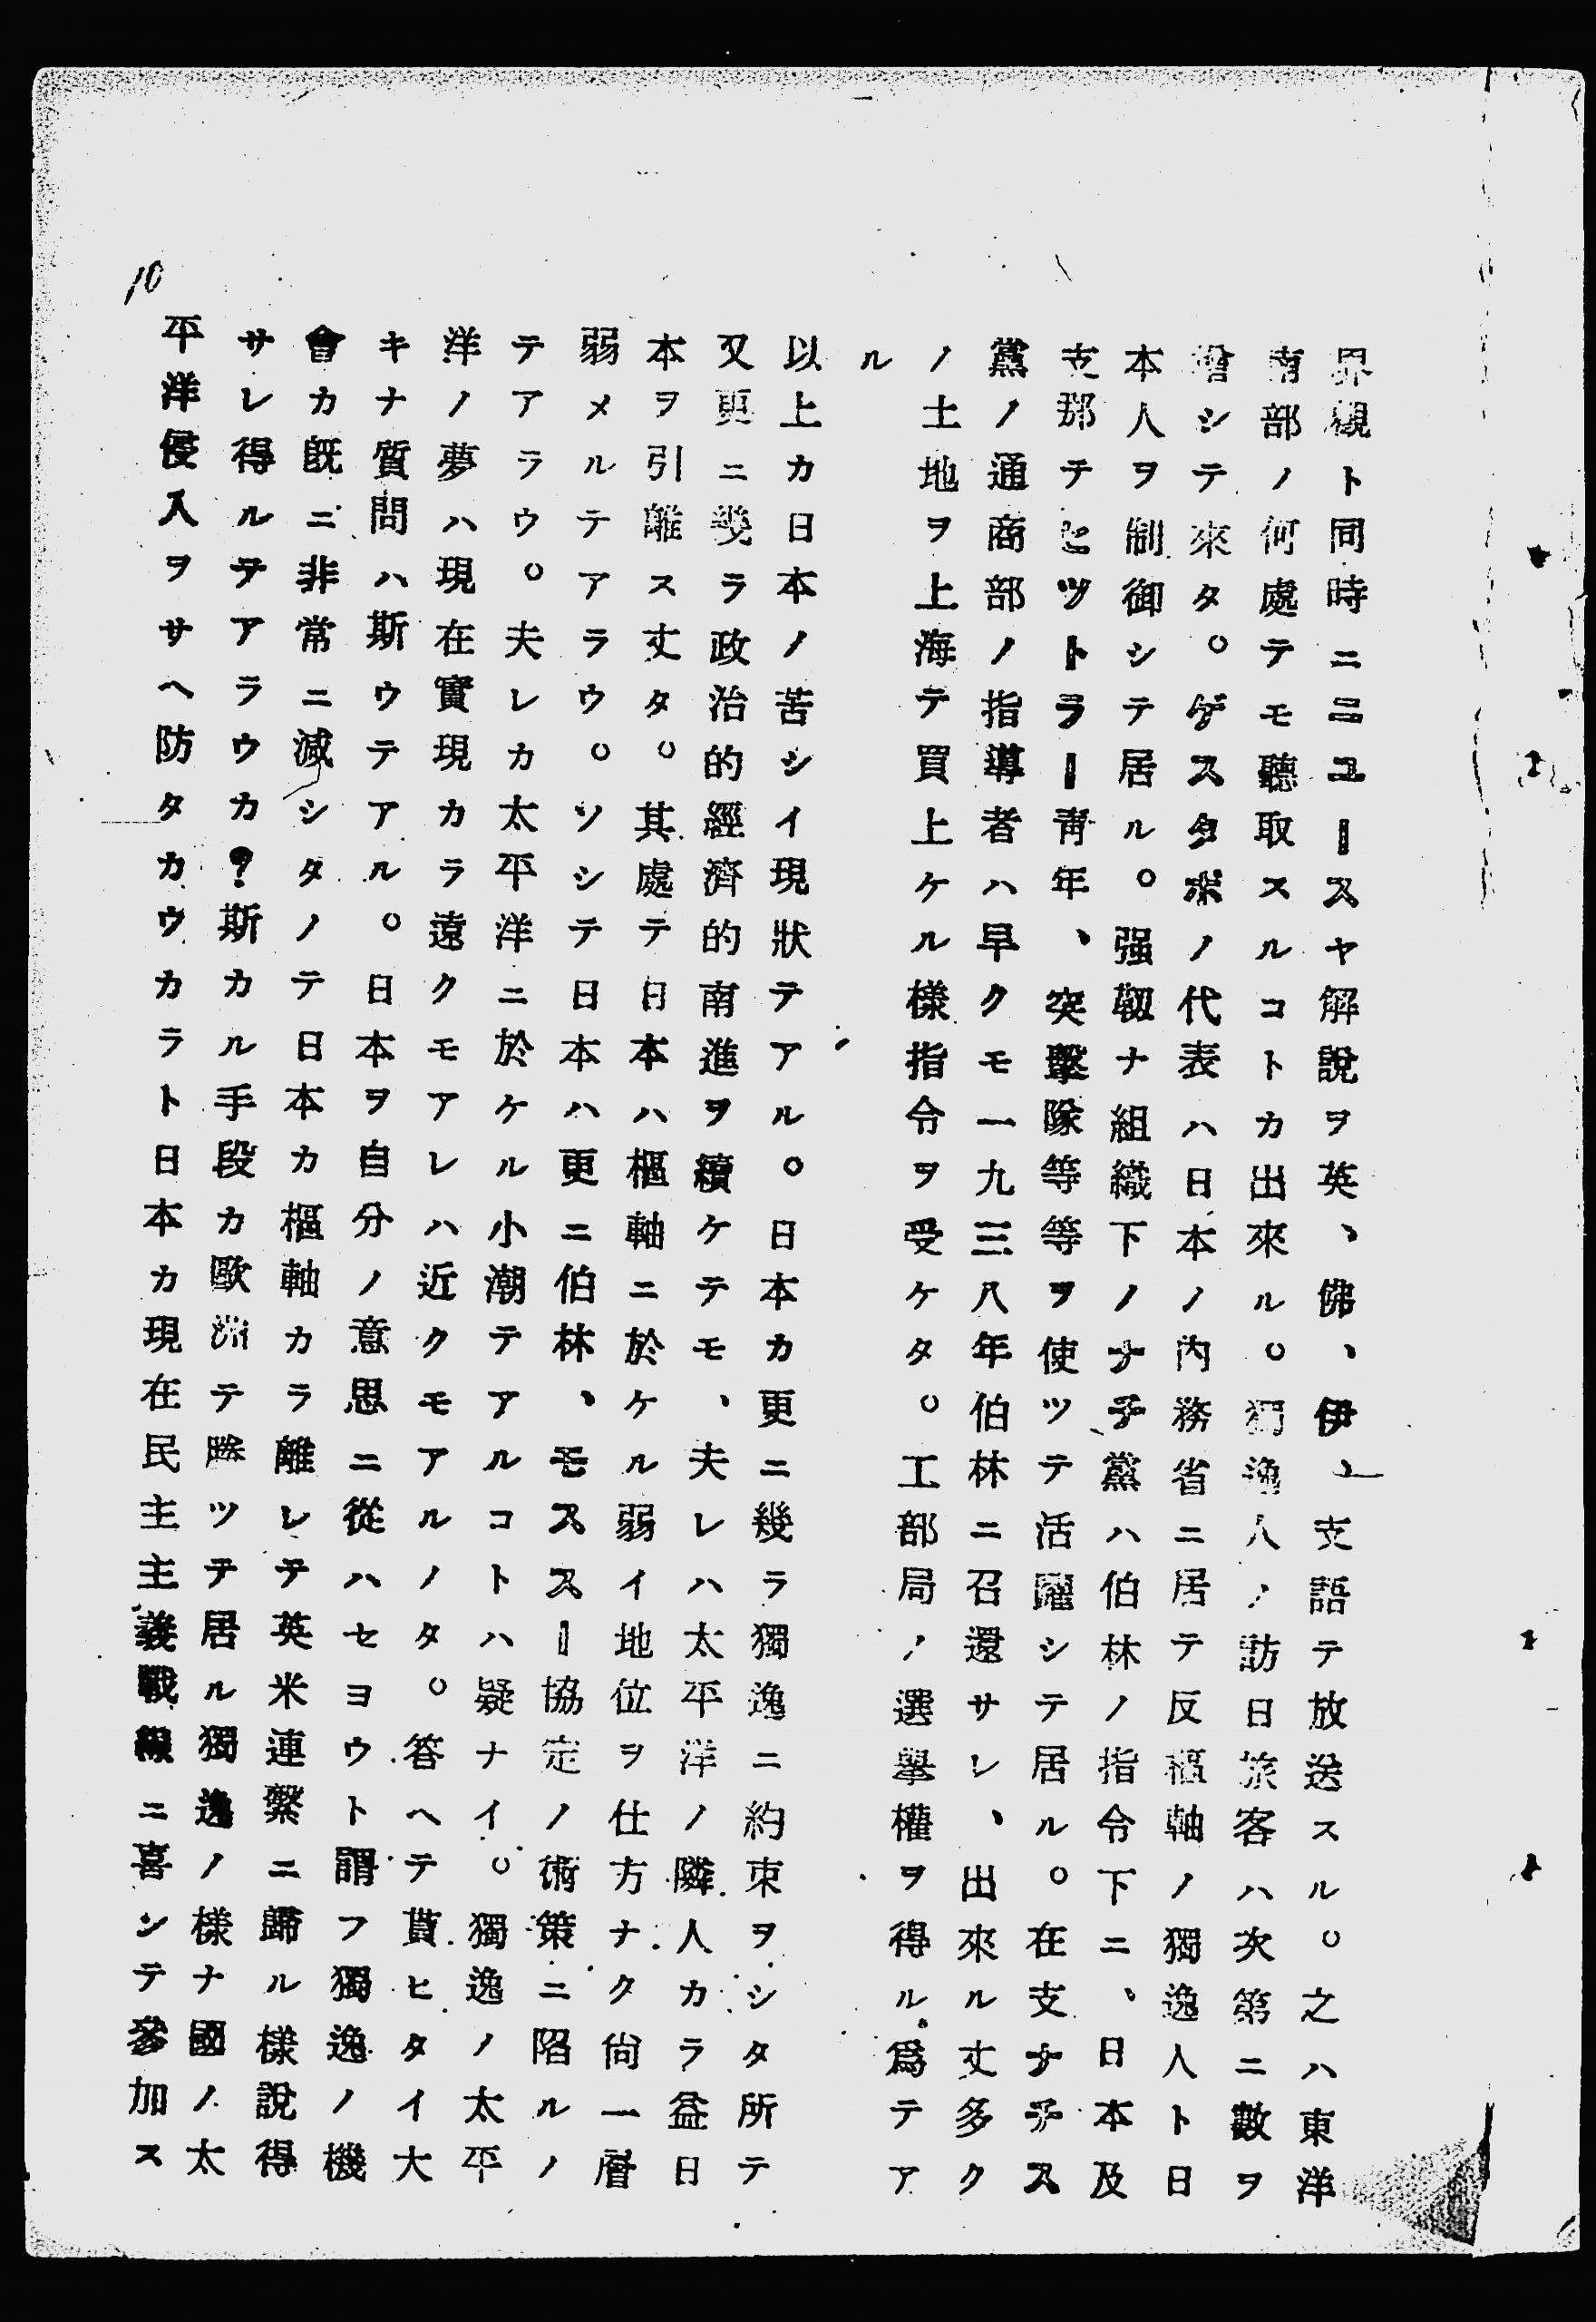 界觀ト同時ニニユースヤ解說ヲ英、佛、伊、支語テ放送スル。之ハ東洋
南部ノ何處テモ聽取スルコトカ出來ル。獨逸人ノ訪日旅客ハ次第ニ數ヲ
增シテ來タ。ゲスタポノ代表ハ日本ノ內務省ニ居テ反樞軸ノ獨逸人ト日
本人ヲ制御シテ居ル。强靱ナ組織下ノナチ黨ハ伯林ノ指令下ニ、日本及
支那テヒツトラー靑年、突擊隊等等ヲ使ツテ活躍シテ居ル。在支ナチス
黨ノ通商部ノ指導者ハ早クモ一九三八年伯林ニ召還サレ、出來ル丈多ク
ノ土地ヲ上海テ買上ケル樣指令ヲ受ケタ。工部局ノ選擧權ヲ得ル爲テア
ル
以上カ日本ノ苦シイ現狀テアル。日本カ更ニ幾ラ獨逸ニ約束ヲシタ所テ
又更ニ幾ラ政治的經濟的南進ヲ續ケテモ、夫レハ太平洋ノ隣人カラ益日
本ヲ引離ス丈タ。其處テ日本ハ樞軸ニ於ケル弱イ地位ヲ仕方ナク尙一層
弱メルテアラウ。ソシテ日本ハ更ニ伯林、モススー協定ノ術策ニ陷ルノ
テアラウ。夫レカ太平洋ニ於ケル小潮テアルコトハ疑ナイ。獨逸ノ太平
洋ノ夢ハ現在實現カラ遠クモアレハ近クモアルノタ。答ヘテ貰ヒタイ大
キナ質問ハ斯ウテアル。日本ヲ自分ノ意思ニ從ハセヨウト謂フ獨逸ノ機
會カ旣ニ非常ニ減シタノテ日本カ樞軸カラ離レテ英米連繫ニ歸ル樣說得
サレ得ルテアラウカ?斯カル手段カ歐洲テ勝ツテ居ル獨逸ノ樣ナ國ノ太
平洋侵入ヲサヘ防タカウカラト日本カ現在民主主義戰線ニ喜ンテ參加ス
10